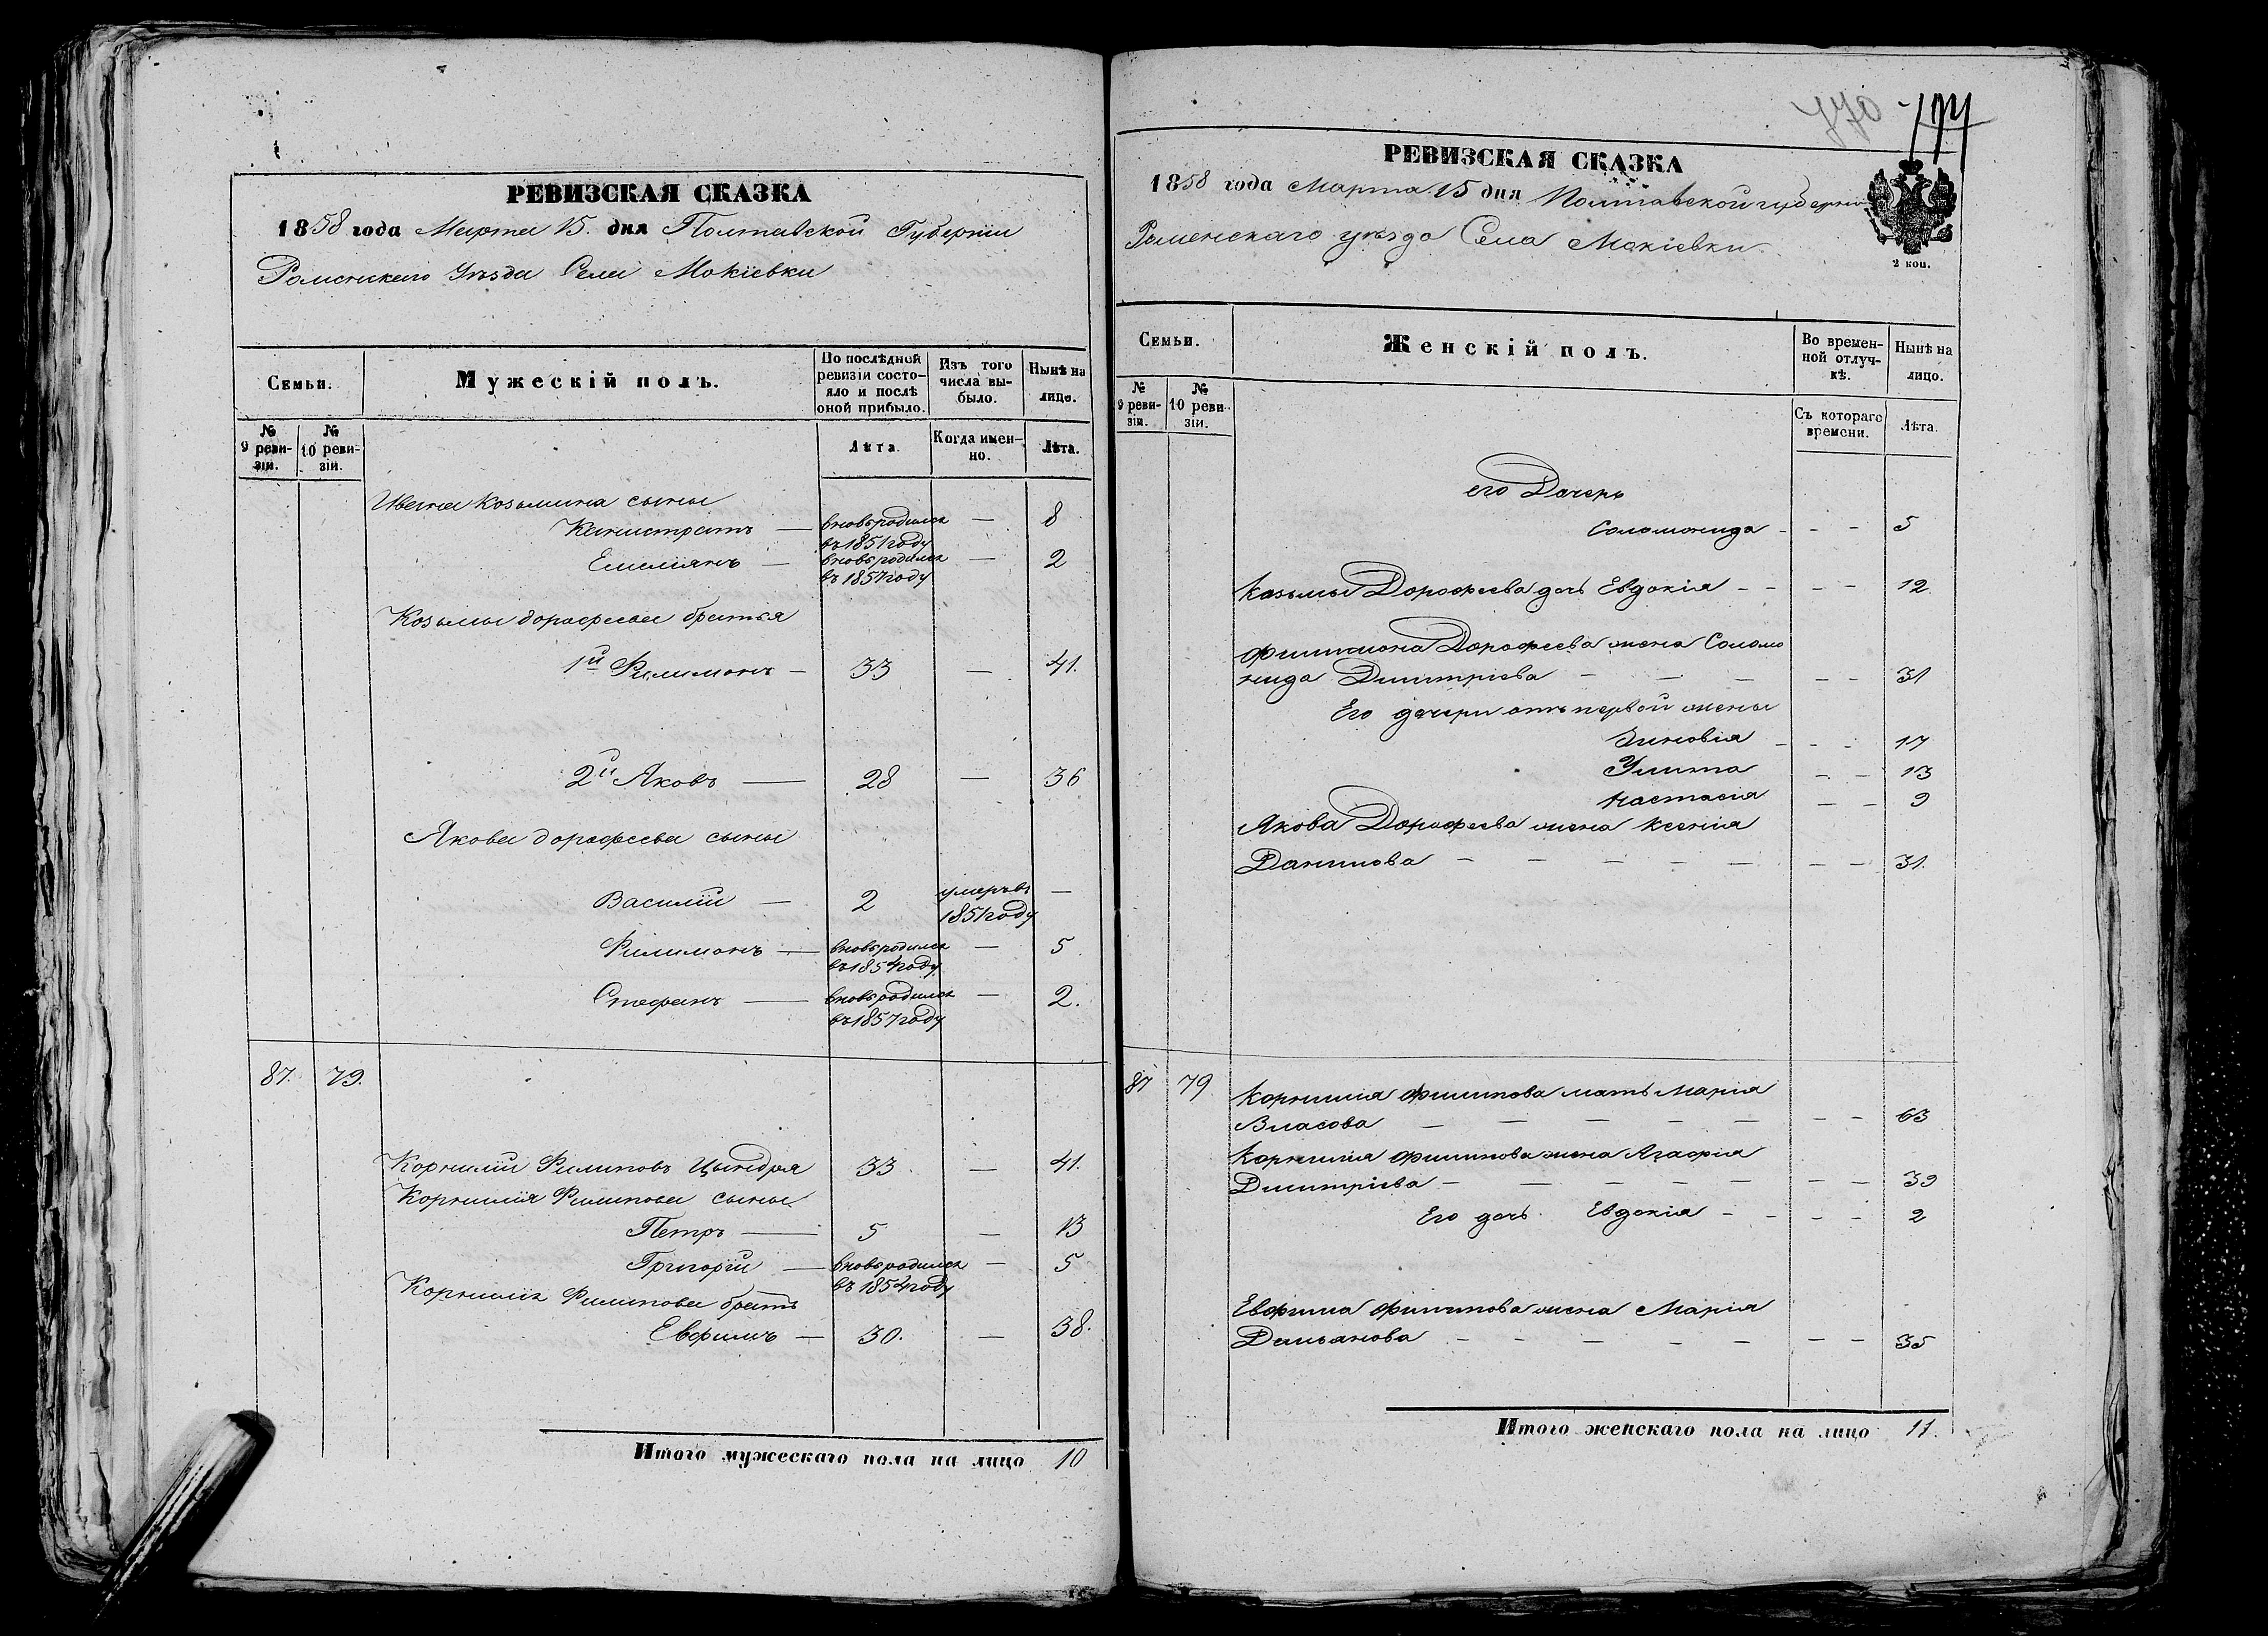 РЕВИЗСКАЯ СКАЗКА
1858 года Марта 15. дня Полтавской Губернiи
Роменскаго Уѣзда Села Мокiевки
Семьи.
Мужескiй полъ.
По послѣдной ревизiи состояло и послѣ оной прибыло.
Изъ того числа выбыло.
Нынѣ на лицо.
№ 9 ревизiи.
№ 10 ревизiи.
Лѣта.
Когда именно.
Лѣта.
Ивана Козьмина сыны
Канистратъ — вновь родился въ 1851 году — 8
Емелиянъ — вновь родился въ 1857 году — 2
Козьмы дорофеева братья
1й Филимонъ — 33 — 41.
2й Яковъ — 28 — 36
Якова дорофеева сыны
Василiй — 2 умеръ въ 1851 году —
Филимонъ — вновь родился въ 1854 году — 5
Стефанъ — вновь родился въ 1857 году — 2.
87. 79.
Корнилiй Филиповъ Цындря 33. — 41.
Корнилiя Филипова сыны
Петръ — 5 — 13
Григорiй — вновь родился въ 1854 году — 5
Корнилiя Филипова братъ
Евфимъ — 30. — 38.
Итого мужескаго пола на лицо 10
770
РЕВИЗСКАЯ СКАЗКА
1858 года Марта 15 дня Полтавской губернiи
Роменскаго уѣзда Села Мокiевки
2 коп.
Семьи.
Женскiй полъ.
Во временной отлучкѣ.
Нынѣ на лицо.
№ 9 ревизiи.
№ 10 ревизiи.
Съ котораго времени.
Лѣта.
его Дочерь
Соломонида - - - 5
Козьмы Дорофеева дочь Евдокiя - - - - 12
Филимона Дорофеева жена Соломо
нида Димитрiева - - - - - 31
Его дочери отъ первой жены
Зиновiя - - - 17
Улита - - 13
Настасiя - - 9
Якова Дорофеева жена Ксенiя
Данилова - - - - - - - 31.
87 79 Корнилiя Филипова мать Марiя
Власова - - - - - - - 63
Корнилiя Филипова жена Агафiя
Димитрiева - - - - - - - - 39
Его дочь Евдокiя - - - - 2
Евфима Филипова жена Марiя
Демьянова - - - - - - - 35
Итого женскаго пола на лицо 11.